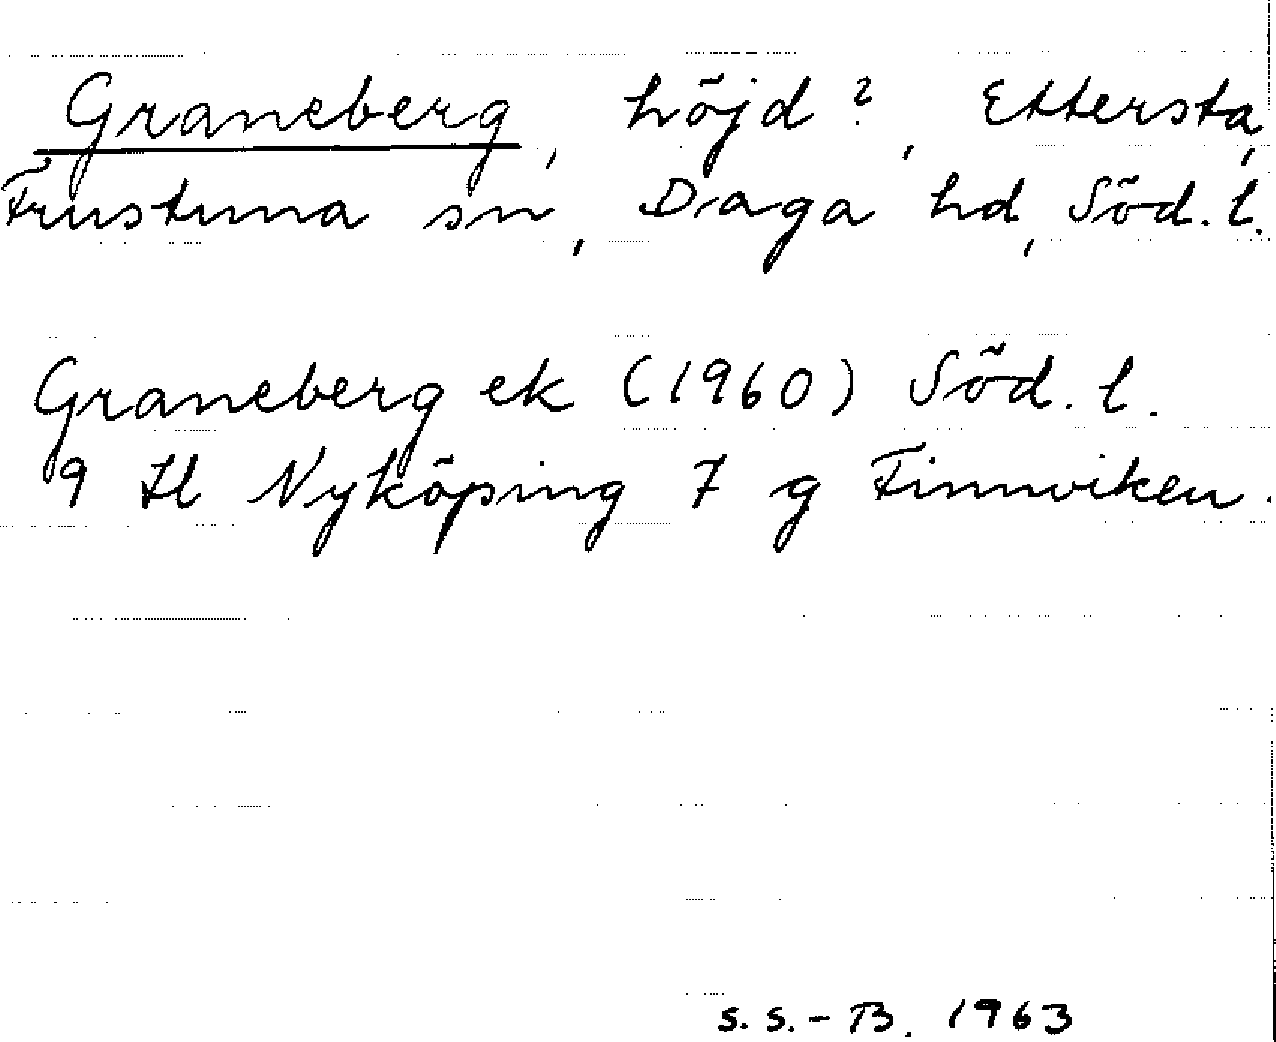 Graneberg, höjd?, Ettersta,
Frustuna sn, Daga hd, Söd. l.
Graneberg ek (1960) Söd. l.
9 H Nyköping 7 g Finnviken.
s.s.-B. 1963